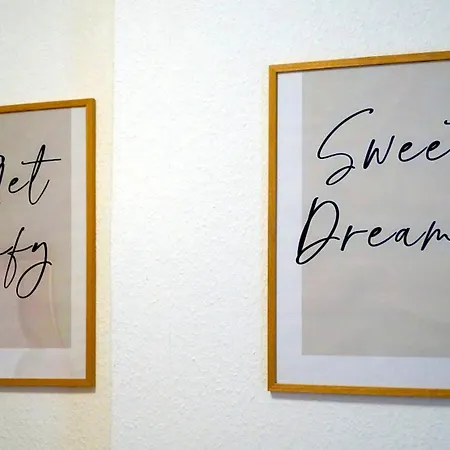 et
fy
Sweet
Dream